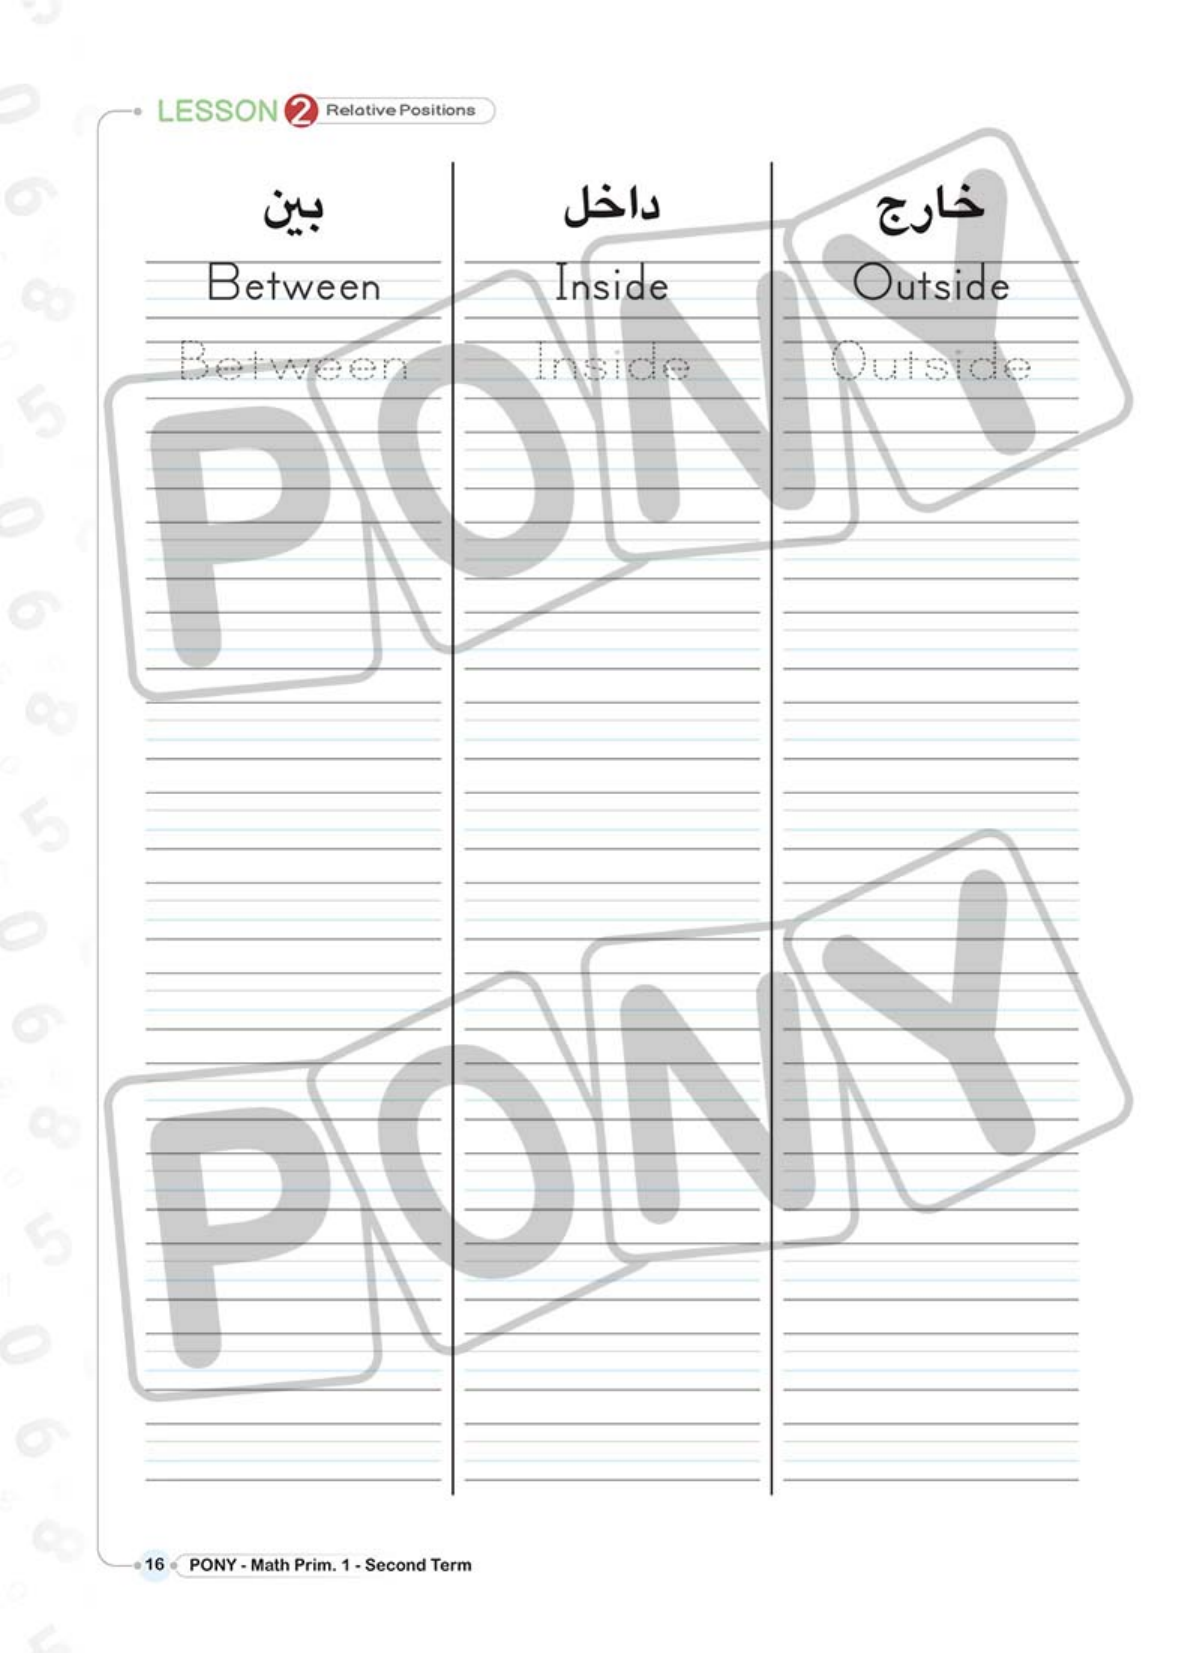 LESSON 2 Relative Positions
بين داخل خارج
Between Inside Outside
Between Inside Outside
PONY
PONY
16 PONY - Math Prim. 1 - Second Term